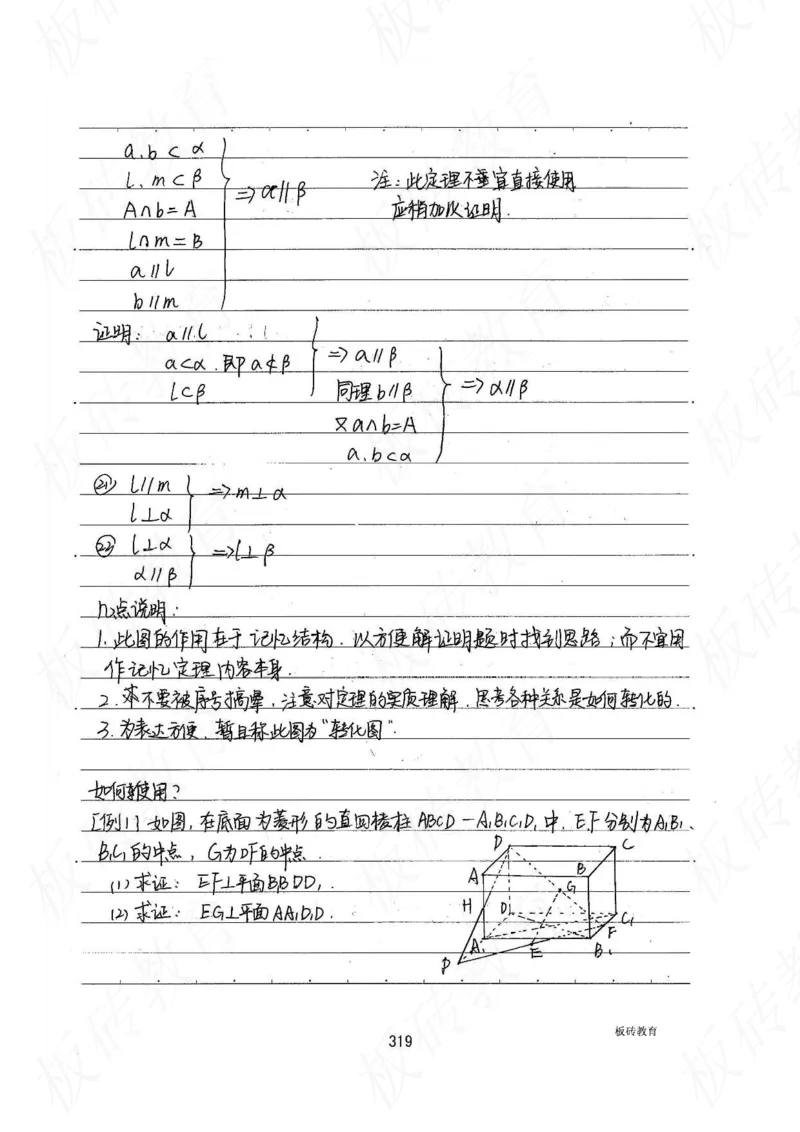 a.b⊂α
l.m⊂β
A∩b=A
l∩m=B
a∥l
b∥m
⇒α∥β
注：此定理不宜直接使用
应稍加以证明.
证明： a∥l
a⊂α.即a⊄β
l⊂β
⇒a∥β
同理b∥β
又a∩b=A
a.b⊂α
⇒α∥β
㉑ l∥m
l⊥α
⇒m⊥α
㉒ l⊥α
α∥β
⇒l⊥β
几点说明：
1.此图的作用在于记忆结构.以方便解证明题时找到思路；而不宜用
作记忆定理内容本身.
2.不要被序号搞晕，注意对定理的实质理解.思考各种关系是如何转化的.
3.为表达方便.暂且称此图为“转化图”.
如何使用？
[例1] 如图,在底面为菱形的直四棱柱ABCD-A₁B₁C₁D₁中.E.F分别为A₁B₁、
B₁C₁的中点，G为DF的中点.
(1)求证： EF⊥平面BB₁DD₁.
(2)求证： EG⊥平面AA₁D₁D.
D
C
A
B
G
H
D₁
C₁
F
A₁
E
B₁
P
319
板砖教育
板砖教育